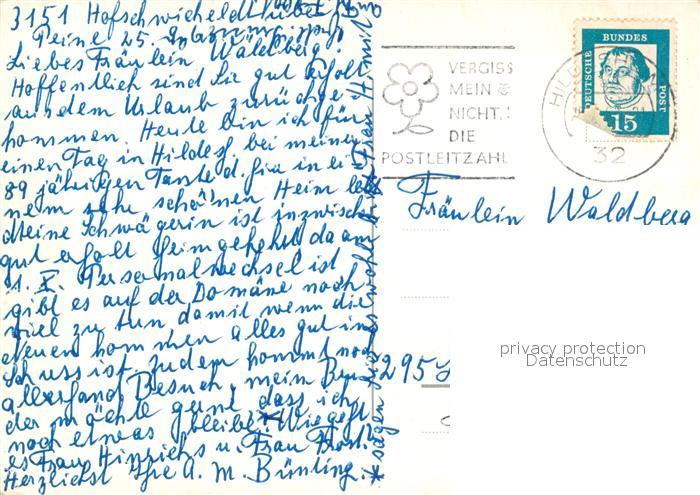 3151 Hofschwicheldt über
Peine 25.
Liebes Fräulein Waldberg!
Hoffentlich sind Sie gut erholt
aus dem Urlaub zurückge-
kommen. Heute bin ich für
einen Tag in Hildesh bei meiner
89 jährigen Tante d. hier in ei-
nem sehr schönen Heim lebt
Meine Schwägerin ist inzwischen
gut erholt heimgekehrt da am
1. X. Personalwechsel ist
gibt es auf der Domäne noch
viel zu tun damit wenn die
neuen kommen alles gut in
Schuss ist. Zudem kommt noch
allerhand Besuch, mein Bru-
der möchte gern dass ich
noch etwas bleibe. * Wie geht
es Frau Hinrichs u. Frau
Herzlichst Ihre A. M. Bünting.
* sagen
VERGISS
MEIN
NICHT
DIE
POSTLEITZAHL
32
DEUTSCHE
BUNDES
POST
15
Fräulein Waldberg
295
privacy protection
Datenschutz